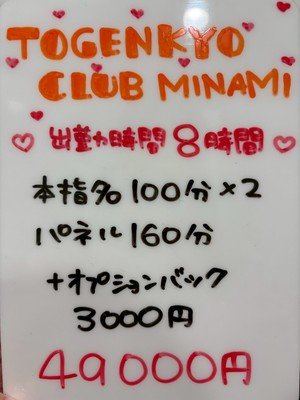 TOGENKYO
CLUB MINAMI
出勤時間 8時間
本指名100分×2
パネル160分
+オプションバック
3000円
49000円